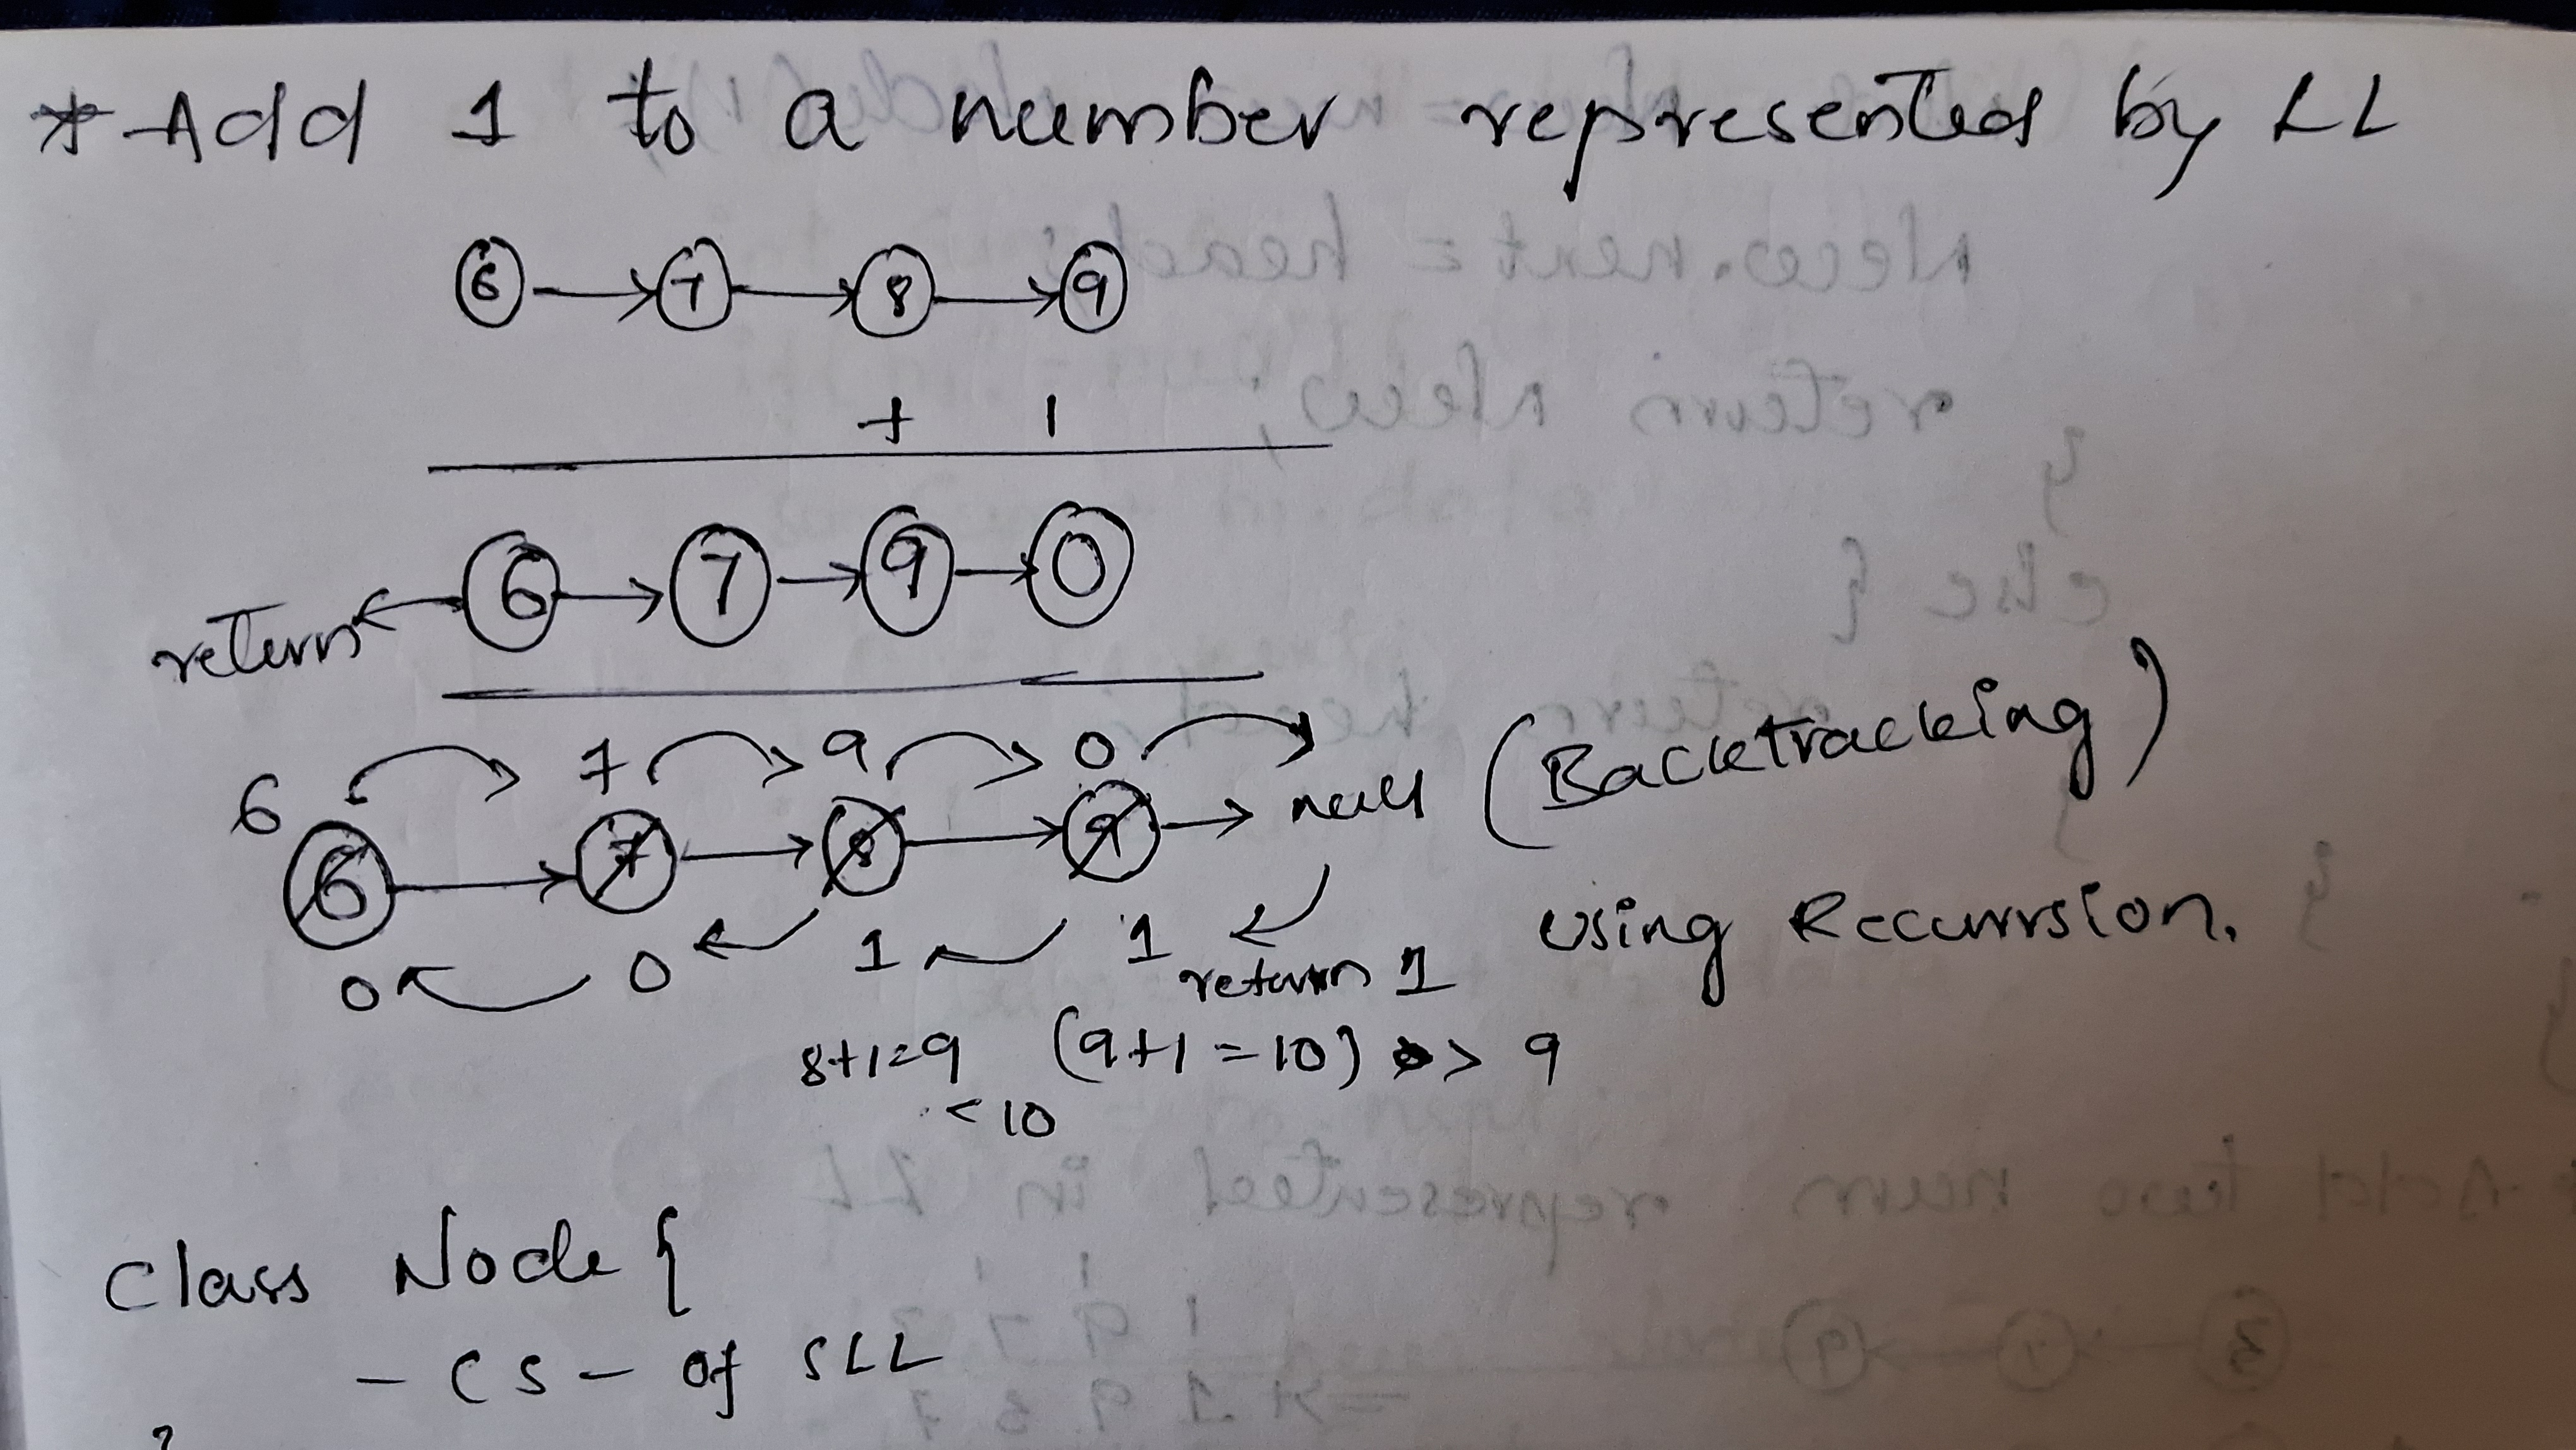 * Add 1 to a number represented by LL
6 → 7 → 8 → 9
+ 1
return ← 6 → 7 → 9 → 0
6 7 9 0
6 → 7 → 8 → 9 → null (Backtracking)
using Recurrsion.
0 0 1 1 return 1
8+1=9 (9+1=10) > 9
< 10
Class Node {
- CS - of SLL